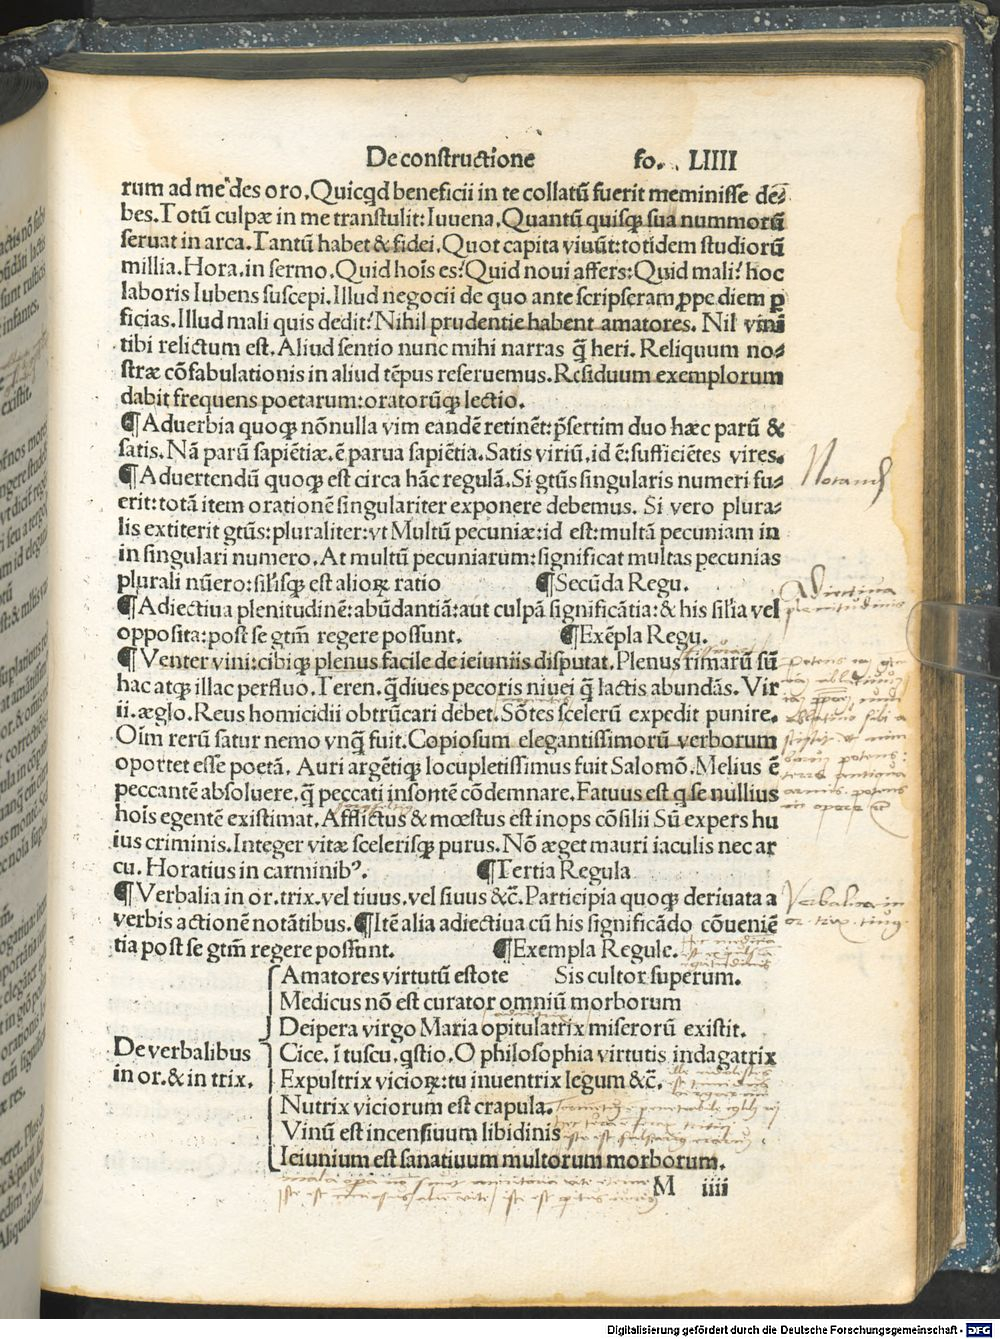 De constructione fo. LIIII
rum ad me des oro. Quicqd beneficii in te collatū fuerit meminisse de⸗
bes. Totū culpæ in me transtulit: Iuuena. Quantū quisqȝ sua nummorū
seruat in arca. Tantū habet & fidei. Quot capita viuūt: totidem studiorū
millia. Hora. in sermo. Quid hoīs es? Quid noui affers: Quid mali? hoc
laboris Iubens suscepi. Illud negocii de quo ante scripseram ꝓpe diem ꝑ
ficias. Illud mali quis dedit? Nihil prudentie habent amatores. Nil vini
tibi relictum est. Aliud sentio nunc mihi narras q̄ heri. Reliquum no⸗
stræ cōfabulationis in aliud tēpus reseruemus. Residuum exemplorum
dabit frequens poetarum: oratorūqȝ lectio.
¶ Aduerbia quoqȝ nōnulla vim eandē retinēt: p̄sertim duo hæc parū &
satis. Nā parū sapiētiæ. ē parua sapiētia. Satis viriū, id ē: sufficiētes vires.
¶ Aduertendū quoqȝ est circa hāc regulā. Si gtūs singularis numeri fu⸗
erit: totā item orationē singulariter exponere debemus. Si vero plura⸗
lis extiterit gtūs: pluraliter: vt Multū pecuniæ: id est: multā pecuniam in
in singulari numero. At multū pecuniarum: significat multas pecunias
plurali nūero: sil'isqȝ est alioꝝ ratio ¶ Secūda Regu.
¶ Adiectiua plenitudinē: abūdantiā: aut culpā significātia: & his sil'ia vel
opposita: post se gtm̄ regere possunt. ¶ Exēpla Regu.
¶ Venter vini: cibiqȝ plenus facile de ieiuniis disputat. Plenus rimarū sū
hac atqȝ illac perfluo. Teren. q̄ diues pecoris niuei q̄ lactis abundās. Vir
ii. æglo. Reus homicidii obtrūcari debet. Sōtes scelerū expedit punire.
Oīm rerū satur nemo vnq̄ fuit. Copiosum elegantissimorū verborum
oportet esse poetā. Auri argētiqȝ locupletissimus fuit Salomō. Melius ē
peccantē absoluere, q̄ peccati insontē cōdemnare. Fatuus est q se nullius
hoīs egentē existimat. Afflictus & mœstus est inops cōsilii Sū expers hu
ius criminis. Integer vitæ scelerisqȝ purus. Nō æget mauri iaculis nec ar
cu. Horatius in carminibꝰ. ¶ Tertia Regula
¶ Verbalia in or. trix. vel tiuus. vel siuus &c̄. Participia quoqȝ deriuata a
verbis actionē notātibus. ¶ Itē alia adiectiua cū his significādo cōueniē
tia post se gtm̄ regere possunt. ¶ Exempla Regule.
Amatores virtutū estote Sis cultor superum.
Medicus nō est curator omniū morborum
Deipera virgo Maria opitulatrix miserorū existit.
De verbalibus
in or. & in trix.
Cice. ī tuscu. qstio. O philosophia virtutis indagatrix
Expultrix vicioꝝ: tu inuentrix legum &c̄.
Nutrix viciorum est crapula.
Vinū est incensiuum libidinis
Ieiunium est sanatiuum multorum morborum.
M iiii
Adiectiua
plenitudinis
Verbalia in
or. trix. tiuus
Digitalisierung gefördert durch die Deutsche Forschungsgemeinschaft - DFG